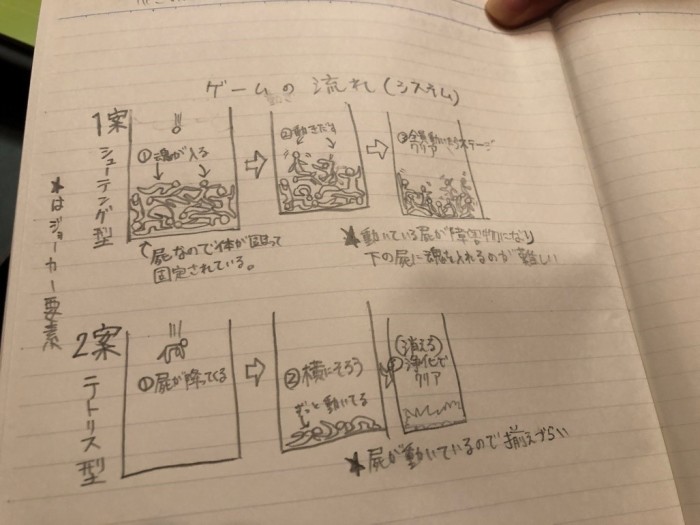 ゲームの流れ(システム)
1案
シューティング型
★はジョーカー要素
①魂が入る
②動きだす
③全員動いたらステージ
クリア
↑屍なので体が固って
固定されている。
★動いている屍が障害物になり
下の屍に魂を入れるのが難しい
2案
テトリス型
①屍が降ってくる
②横にそろう
ずっと動いてる
(消える)
③浄化で
クリア
★屍が動いているので揃えづらい